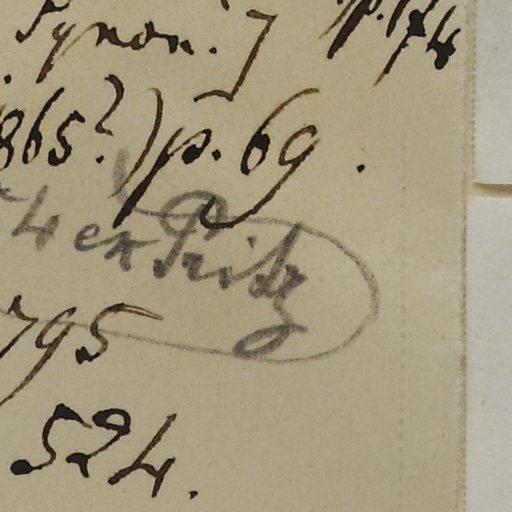 Synon. 7 p. 174
865?) p. 69.
4 ex Pritz
795
524.